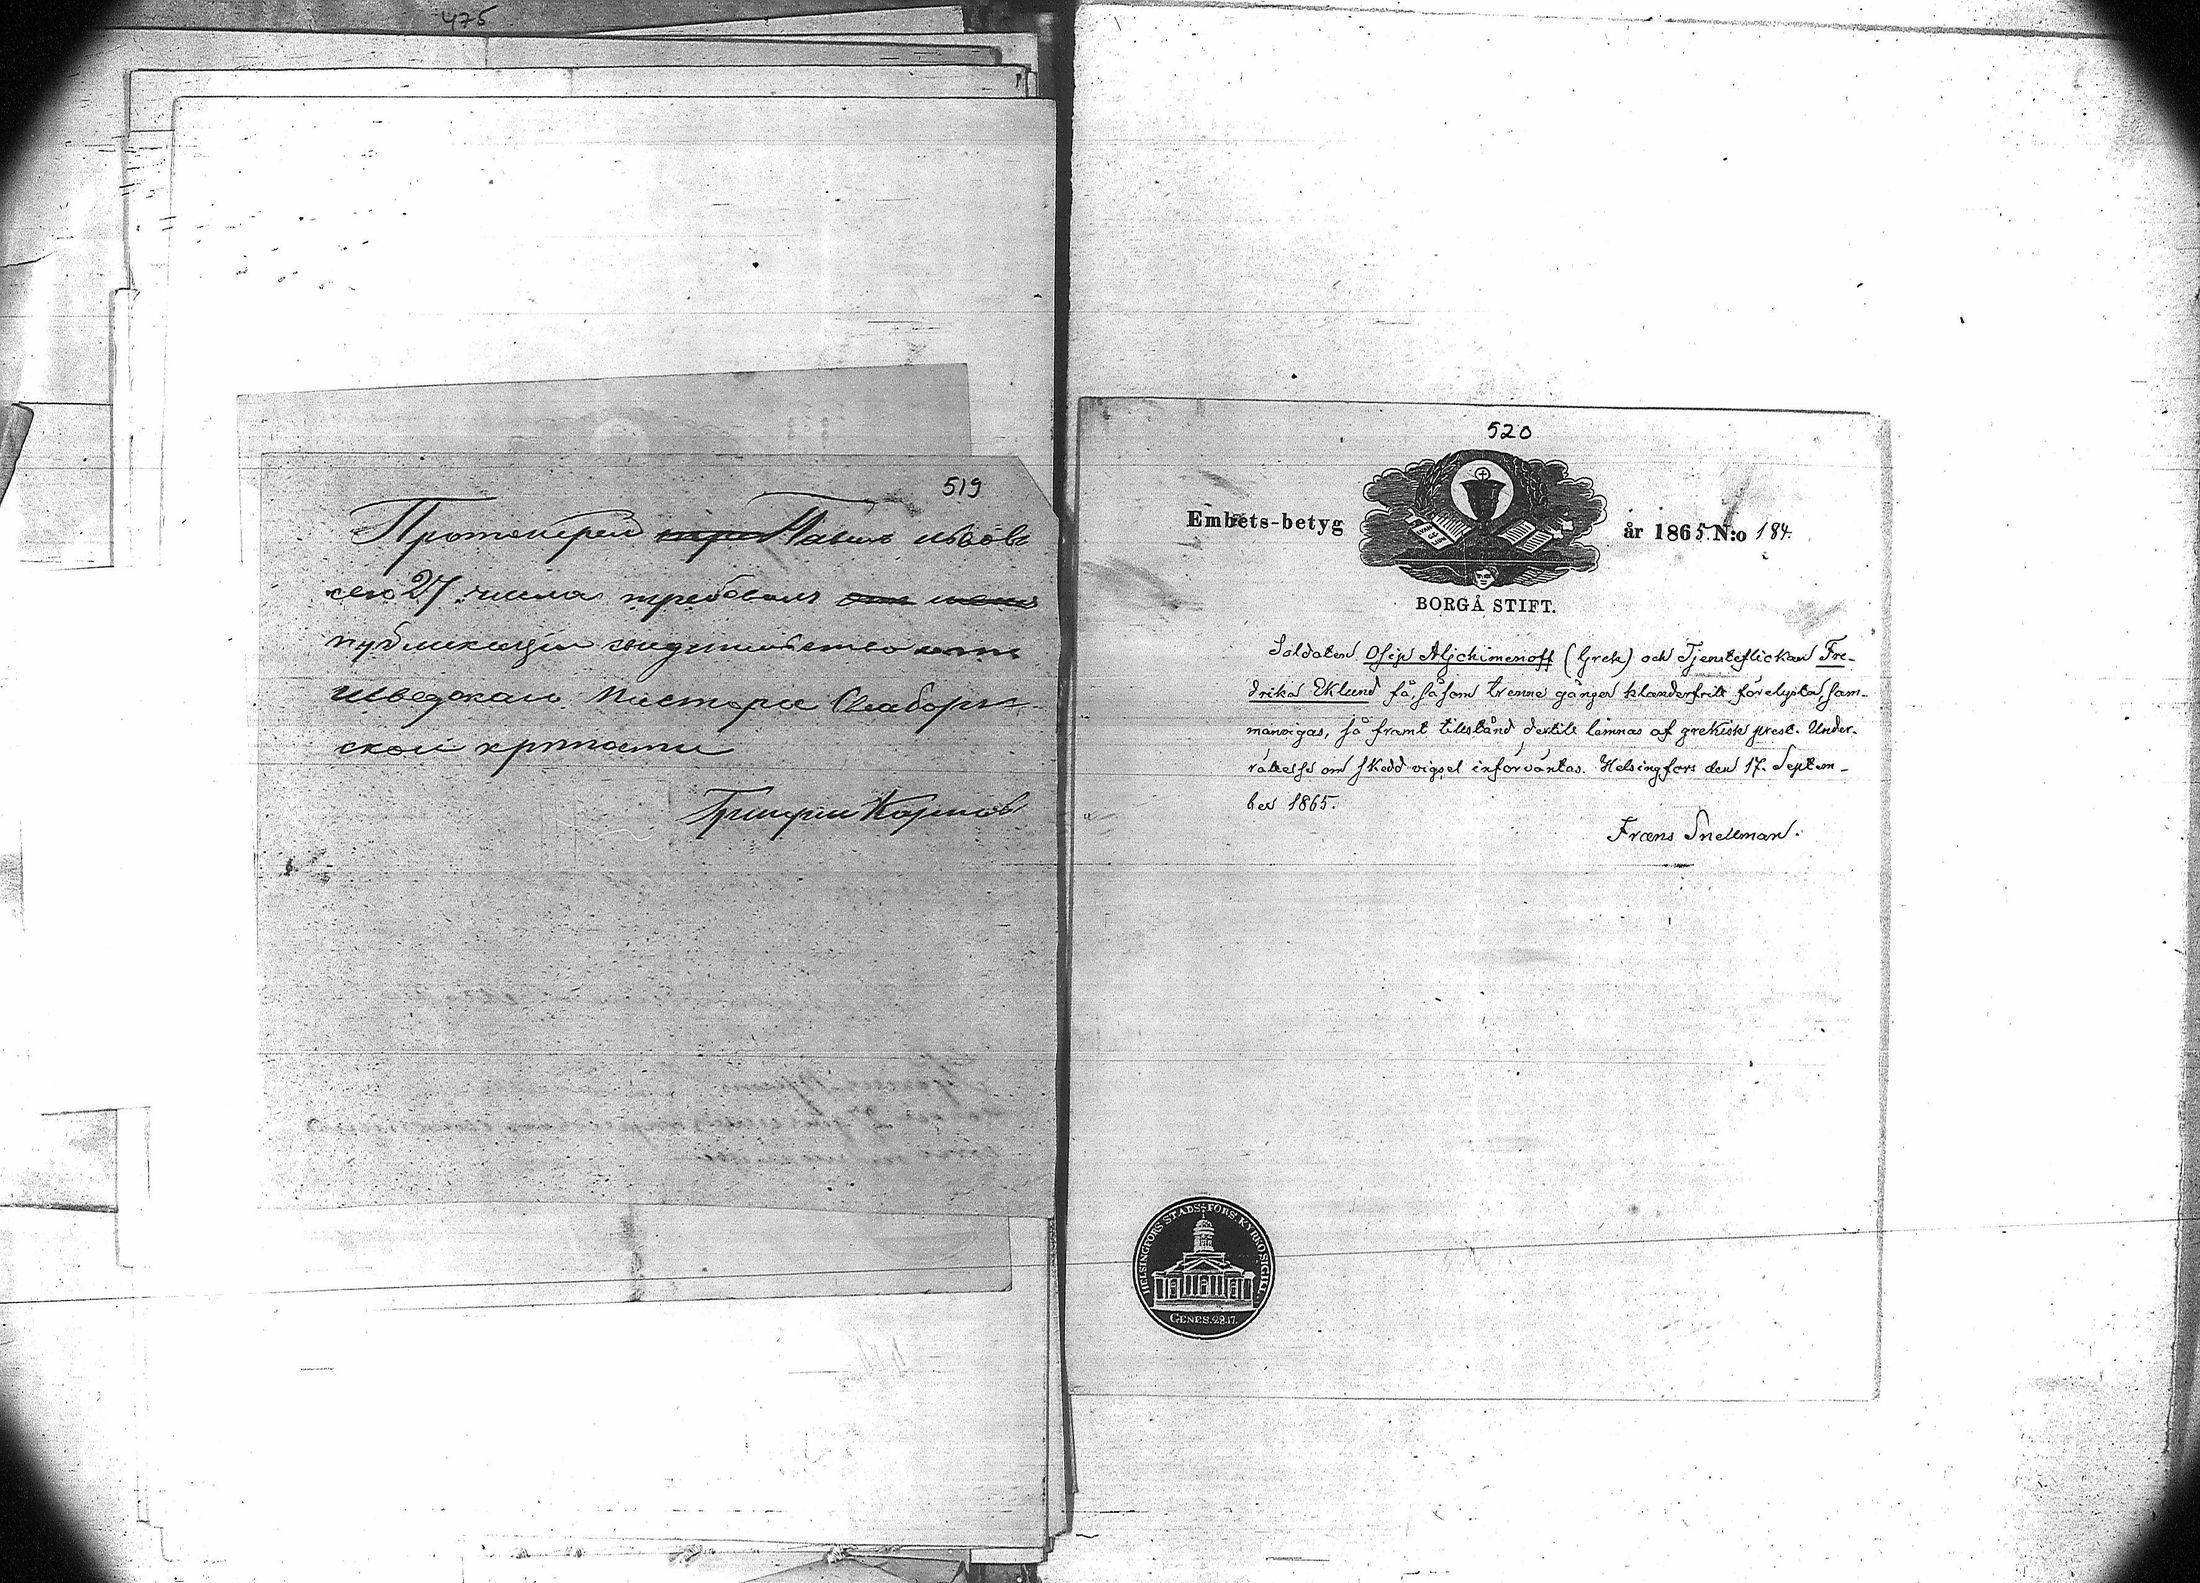 475
519
Протоиерей Павелъ Львовъ
сего 27 числа требовалъ
публикаціи свидѣтельство
шведскаго Пастора Свеаборг-
ской крѣпости
Григорій
520
Embets-betyg år 1865 N:o 184.
BORGÅ STIFT.
Soldaten Osip Aljchimenoff (Grek) och Tjensteflickan Fre-
drika Eklund få, såsom trenne gånger klanderfritt förelysta, sam-
manvigas, så framt tillstånd dertill lemnas af grekisk prest. Under-
rättelse om skedd vigsel införväntas. Helsingfors den 17. Septem-
ber 1865.
Frans Snellman.
HELSINGFORS STADS FÖRS. KYRKO SIGILL.
GENES. 28.17.